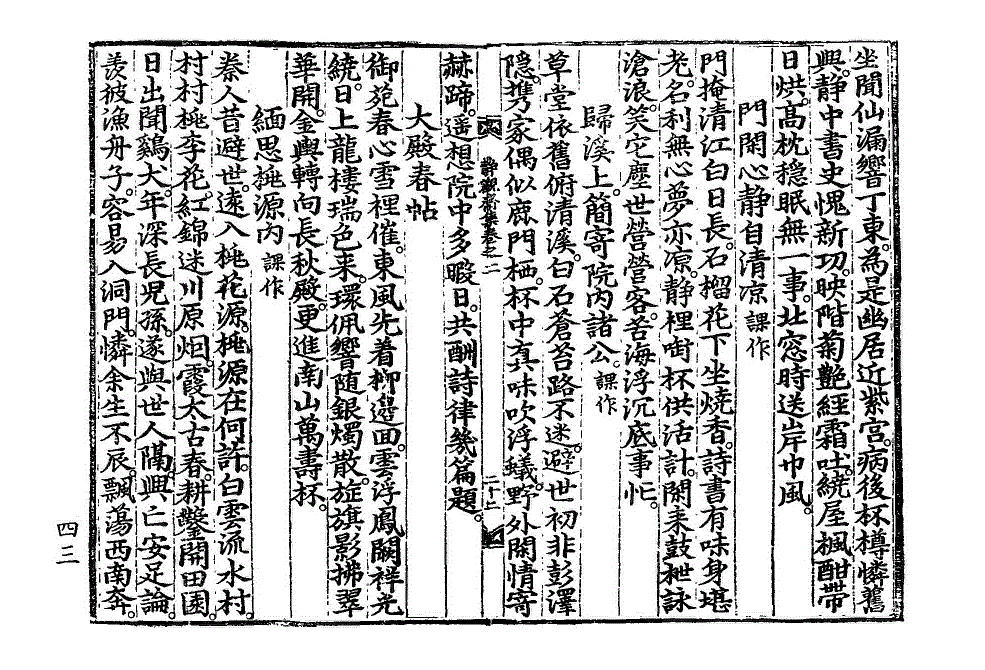 坐聞仙漏響丁東。為是幽居近紫宮。病後杯樽憐舊
興。静中書史愧新功。映階菊艶經霜吐。繞屋楓酣帶
日烘。高枕穏眠無一事。北窓時送岸巾風。
門閑心静自清凉 課作
門掩清江白日長。石榴花下坐燒香。詩書有味身堪
老。名利無心夢亦凉。静裡啣杯供活計。閑来鼓枻詠
滄浪。笑它塵世營營客。苦海浮沉底事忙。
歸溪上。簡寄院內諸公。課作
草堂依舊俯清溪。白石蒼苔路不迷。避世初非彭澤
隐。携家偶似鹿門栖。杯中真味吹浮蟻。野外閑情寄
赫蹄。遥想院中多暇日。共酬詩律幾篇題。
静觀齋集卷之二
二十二
大殿春帖
御苑春心雪裡催。東風先着柳邉面。雲浮鳳闕祥光
繞。日上龍樓瑞色来。環佩響随銀燭散。旋旗影拂翠
華開。金輿轉向長秋殿。更進南山萬壽杯。
緬思桃源內 課作
秦人昔避世。遠入桃花源。桃源在何許。白雲流水村。
村村桃李花。紅錦迷川原。烟霞太古春。耕鑿開田園。
日出聞鷄犬。年深長兒孫。遂與世人隔。興亡安足論。
羨彼漁舟子。容易入洞門。憐余生不辰。飄蕩西南奔。
四三